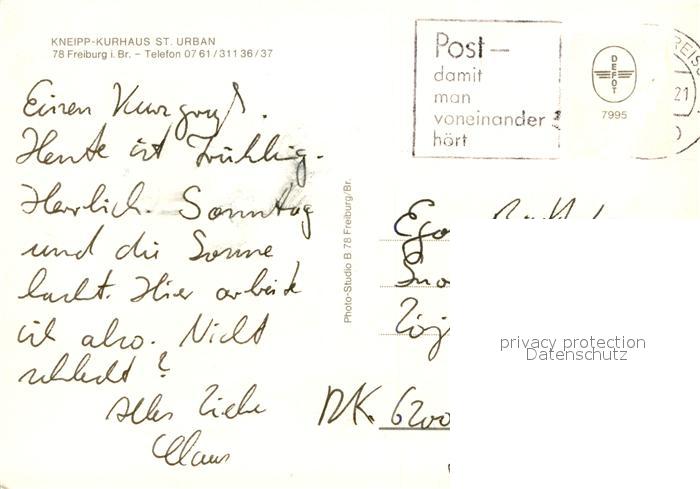 KNEIPP-KURHAUS ST. URBAN
78 Freiburg i. Br. – Telefon 07 61 / 3 11 36 / 37
Einen Kurzgruß.
Heute ist Frühling.
Herrlich. Sonntag
und die Sonne
lacht. Hier arbeite
ich also. Nicht
schlecht?
Alles Liebe
Claus
Photo-Studio B 78 Freiburg/Br.
Post –
damit
man
voneinander
hört
DEFOT
7995
21
DK. 6200
privacy protection
Datenschutz